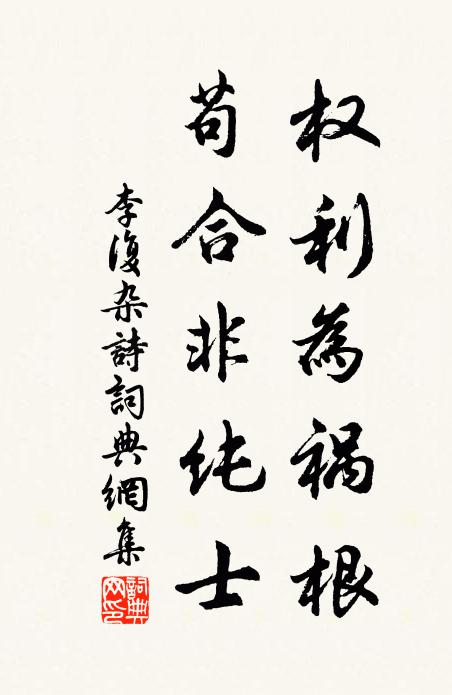 权利为祸根
苟合非纯士
李復杂詩詞典網集
詞典网印